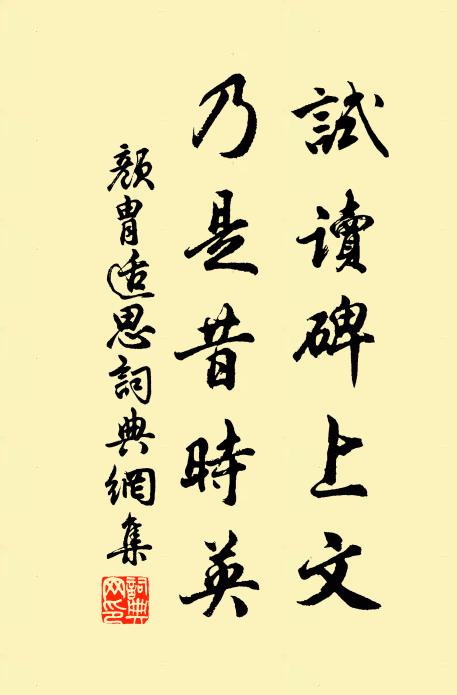 試讀碑上文
乃是昔時英
顏胄适思詞典網集
詞典网印